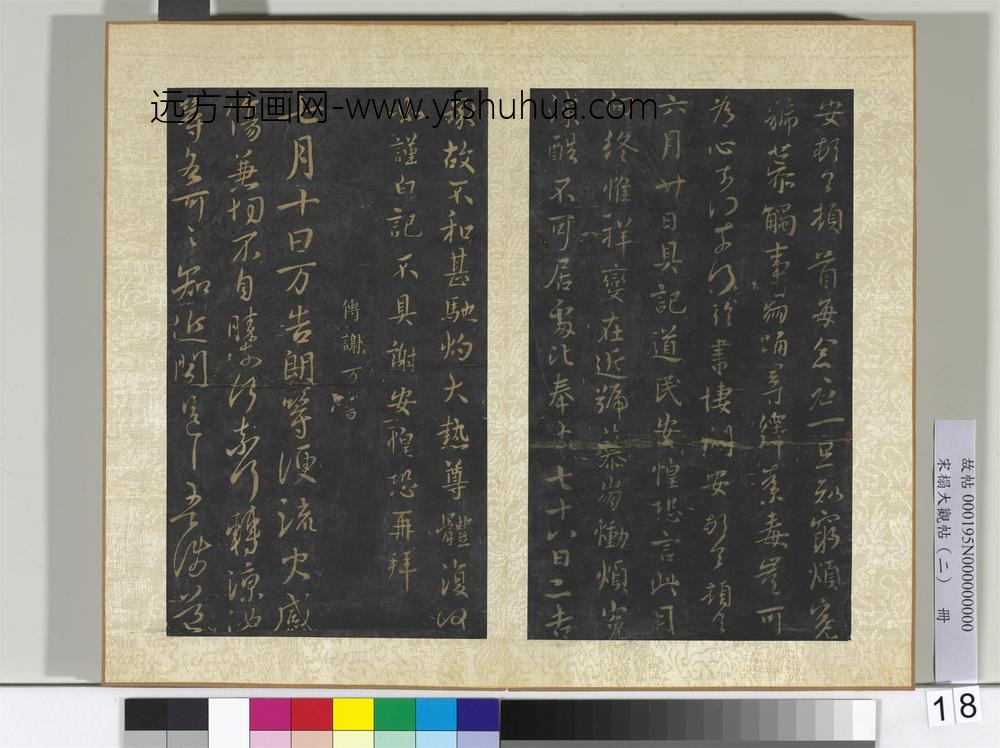 远方书画网-www.yfshuhua.com
安頓首頓首每念君一旦知窮煩冤
號慕觸事崩踊尋繹荼毒豈可
為心奈何奈何臨書悽悶安頓首頓首
六月廿日具記道民安惶恐言此月
向終惟祥變在近號慕崩慟煩冤
深酷不可居處比奉十七十八日二告
承故不和甚馳灼大熱尊體復何
如謹白記不具謝安惶恐再拜
傳謝万書
七月十日万告朗等便流火感
傷兼切不自勝奈何奈何轉涼汝
等各可可知近問邑邑吾涉道
故帖 000195N000000000
宋榻大觀帖（二） 冊
18